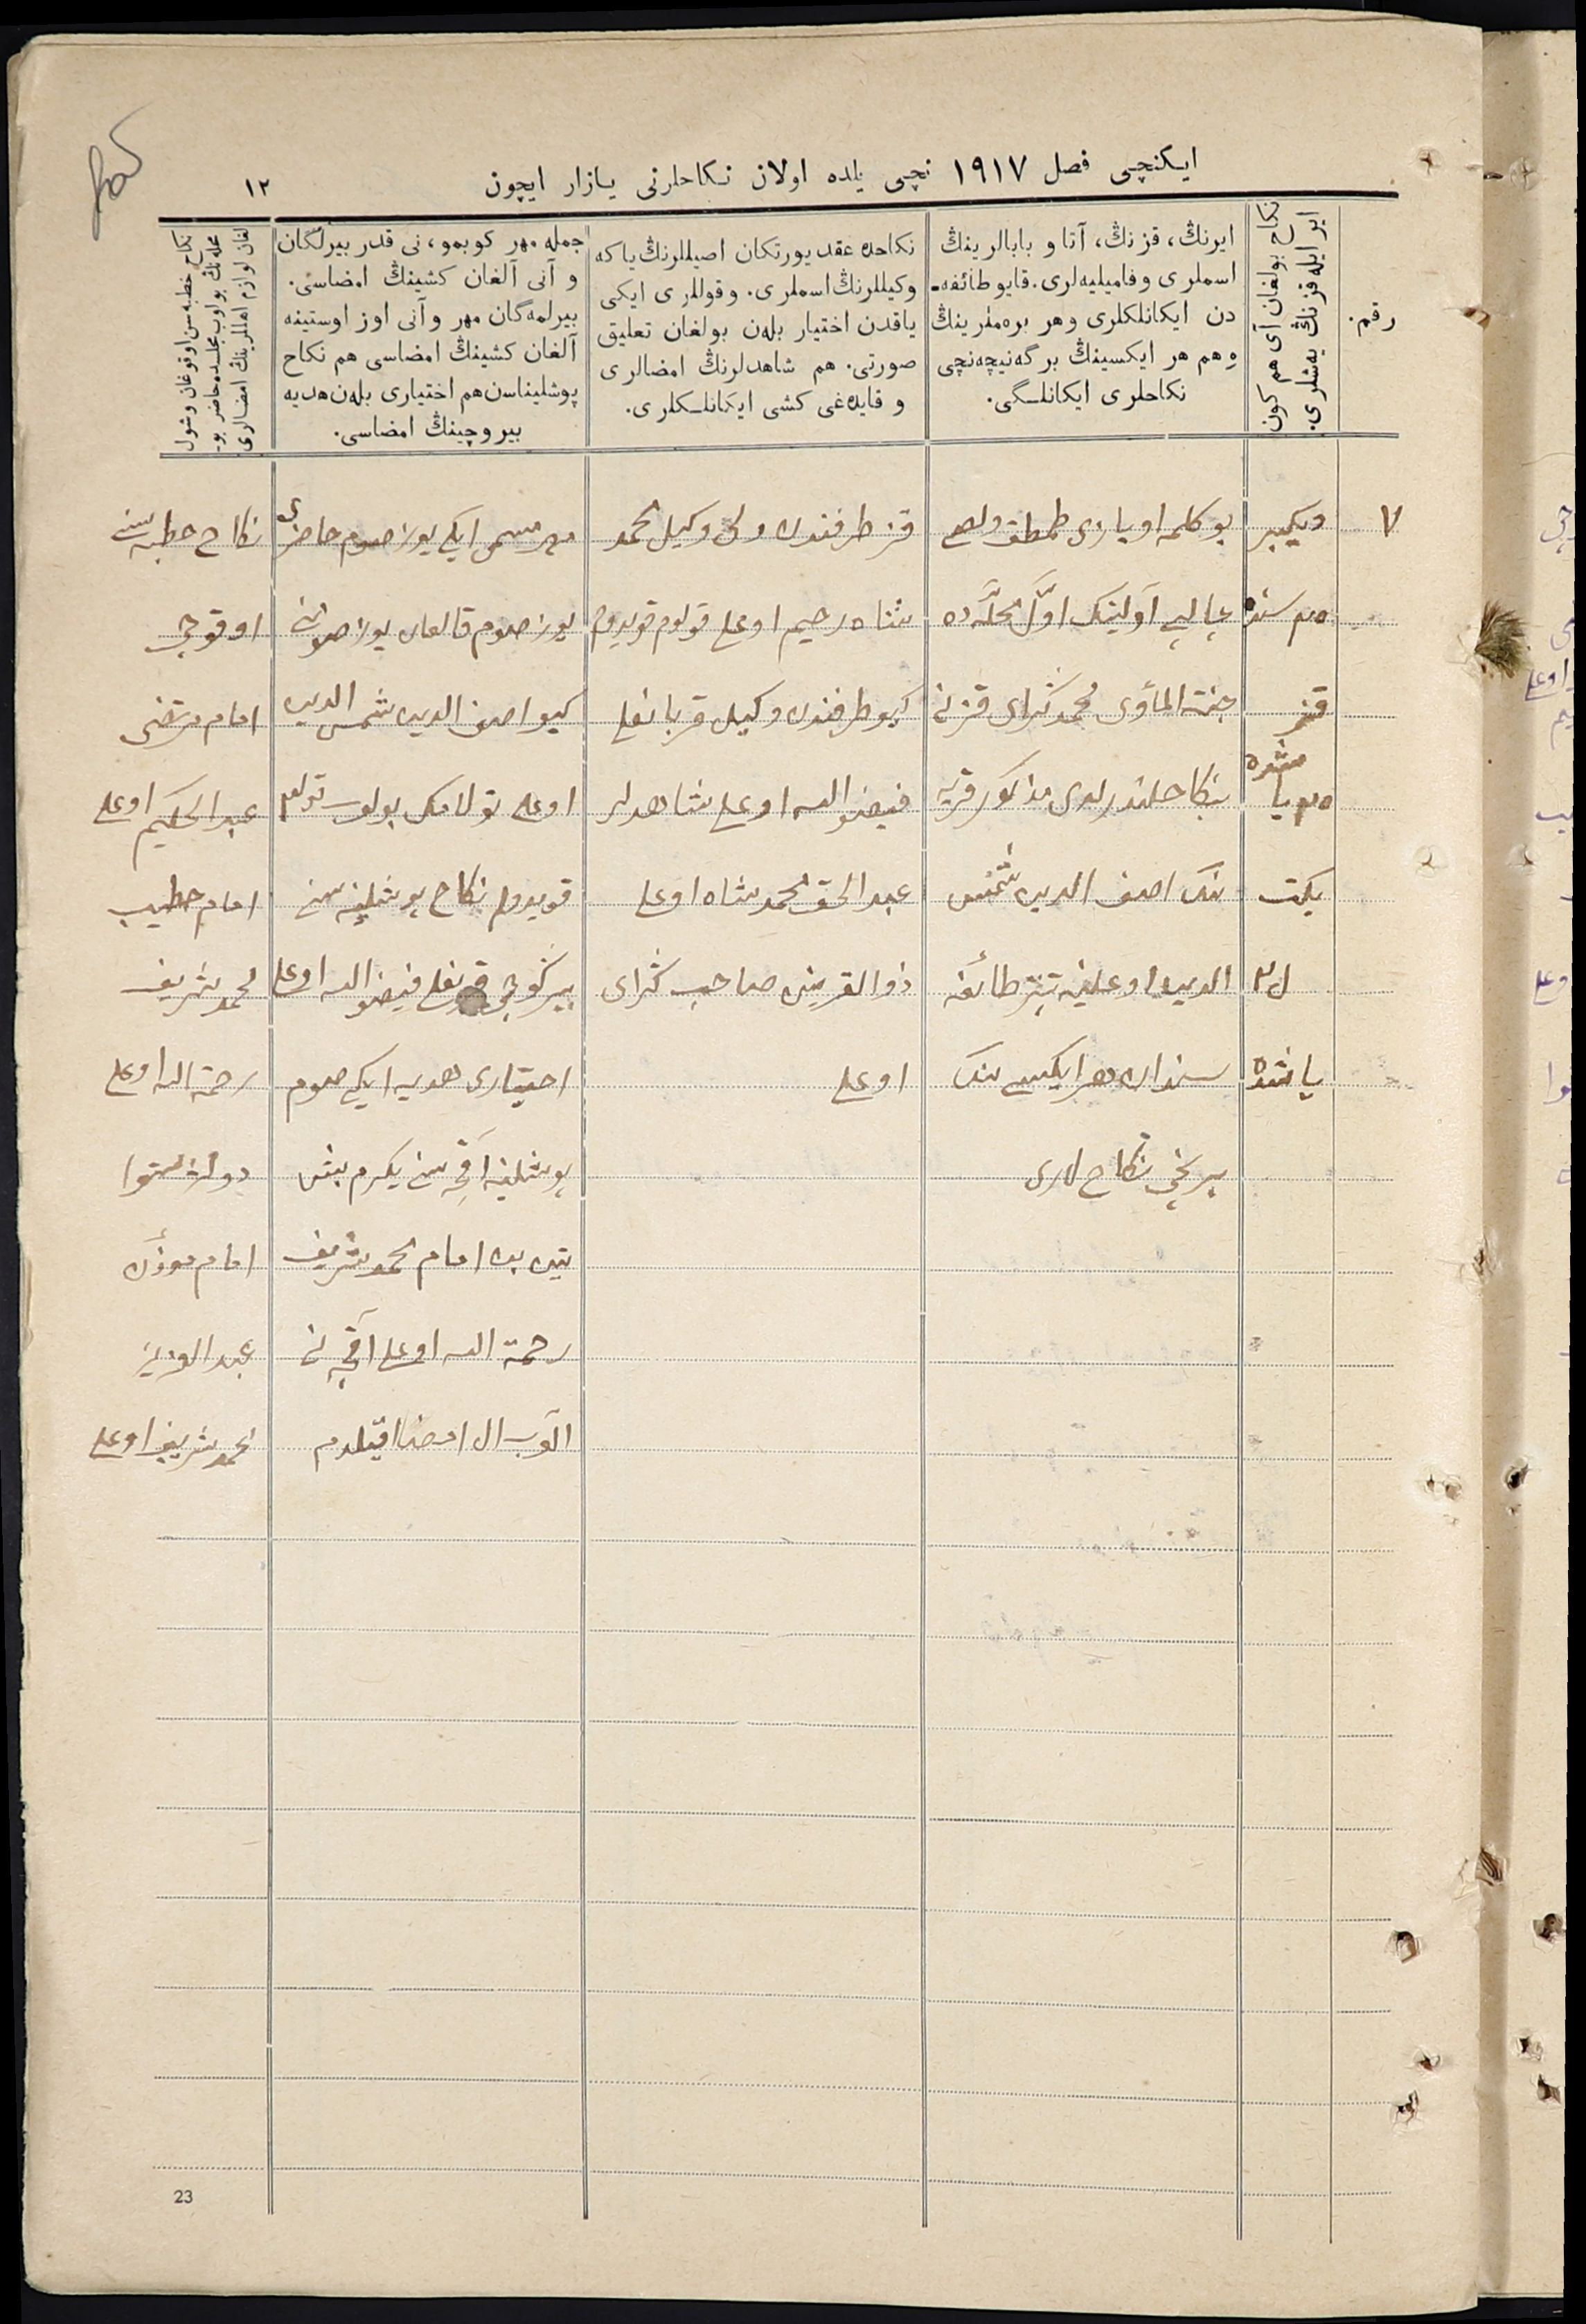 ایکنچی فصل ١٩١٧ نچی یلده اولان نکاحلرنی یازار ایچون
١٢
رقم.
نکاح بولغان آی هم کون
ایر ایله قزنڭ یه‌شلری.
ایرنڭ، قزنڭ، آتا و بابالرینڭ
اسملری وفامیلیه‌لری. قایو طائفه‌ـ
دن ایکانلکلری وهر بره‌ملرینڭ
وهم هر ایکسینڭ برگه‌نیچه‌نچی
نکاحلری ایکانلـگی.
نکاحده عقد یورتکان اصیللرنڭ یاکه
وکیللرنڭ اسملری. وقوللری ایکی
یاقدن اختیار بلەن بولغان تعلیق
صورتی. هم شاهدلرنڭ امضالری
و قایده‌غی کشی ایکانلـکلری.
جمله مهر کوبمو، نی قدر بیرلگان
و آنی آلغان کشینڭ امضاسی.
بیرلمه‌گان مهر وآنی اوز اوستینه
آلغان کشینڭ امضاسی هم نکاح
پوشلیناسن هم اختیاری بلەن هدیه
بیروچینڭ امضاسی.
نکاح خطبه‌سن اوقوغان وشول
محله‌نڭ بولوب مجلسده حاضر بو۔
لغان لوازم اهللرینڭ امضالری
٧
دیکبر
٢٥ سنده
قز
٢٥ یا
مشده
یکت
یاشده
بو کلمه اویازی
اوّل محلّه ده
جنة المأوی محمدگرای قزنی
نکاحلندرلدی مذکور قریه
نک اصف الدین شمس
الدین اوغلینه تبتر طائفه
سندان هر ایکیسی نک
برنچی نکاح لاری
قز طرفندن ولی وکیل محمد
شاه رحیم اوغلی قولوم قویدوم
کیو طرفندن وکیل قربانغلی
فیض الله اوغلی شاهدلر
عبد الحق محمدشاه اوغلی
ذو القرنین صاحب گرای
اوغلی
مهر مسمی ایکی یوز صوم حاضری
یوز صوم قالغان یوز صومنی
کیو اصف الدین شمس الدین
اوغلی تولامک بولوب قولم
قویدوم نکاح پوشلینه سنی
بیرگوچی قربانغلی فیض الله اوغلی
اختیاری هدیه ایکی صوم
پوشلینه آقچه سنی یکرم بش
تین بن امام محمدشریف
رحمة الله اوغلی آقچه نی
آلوب ال امضا ایتدم
نکاح خطبه سنی
اوقوچی
امام مرتضی
عبد الحکیم اوغلی
امام خطیب
محمدشریف
رحمة الله اوغلی
امام مؤذن
عبد العزیز
محمدشریف اوغلی
23